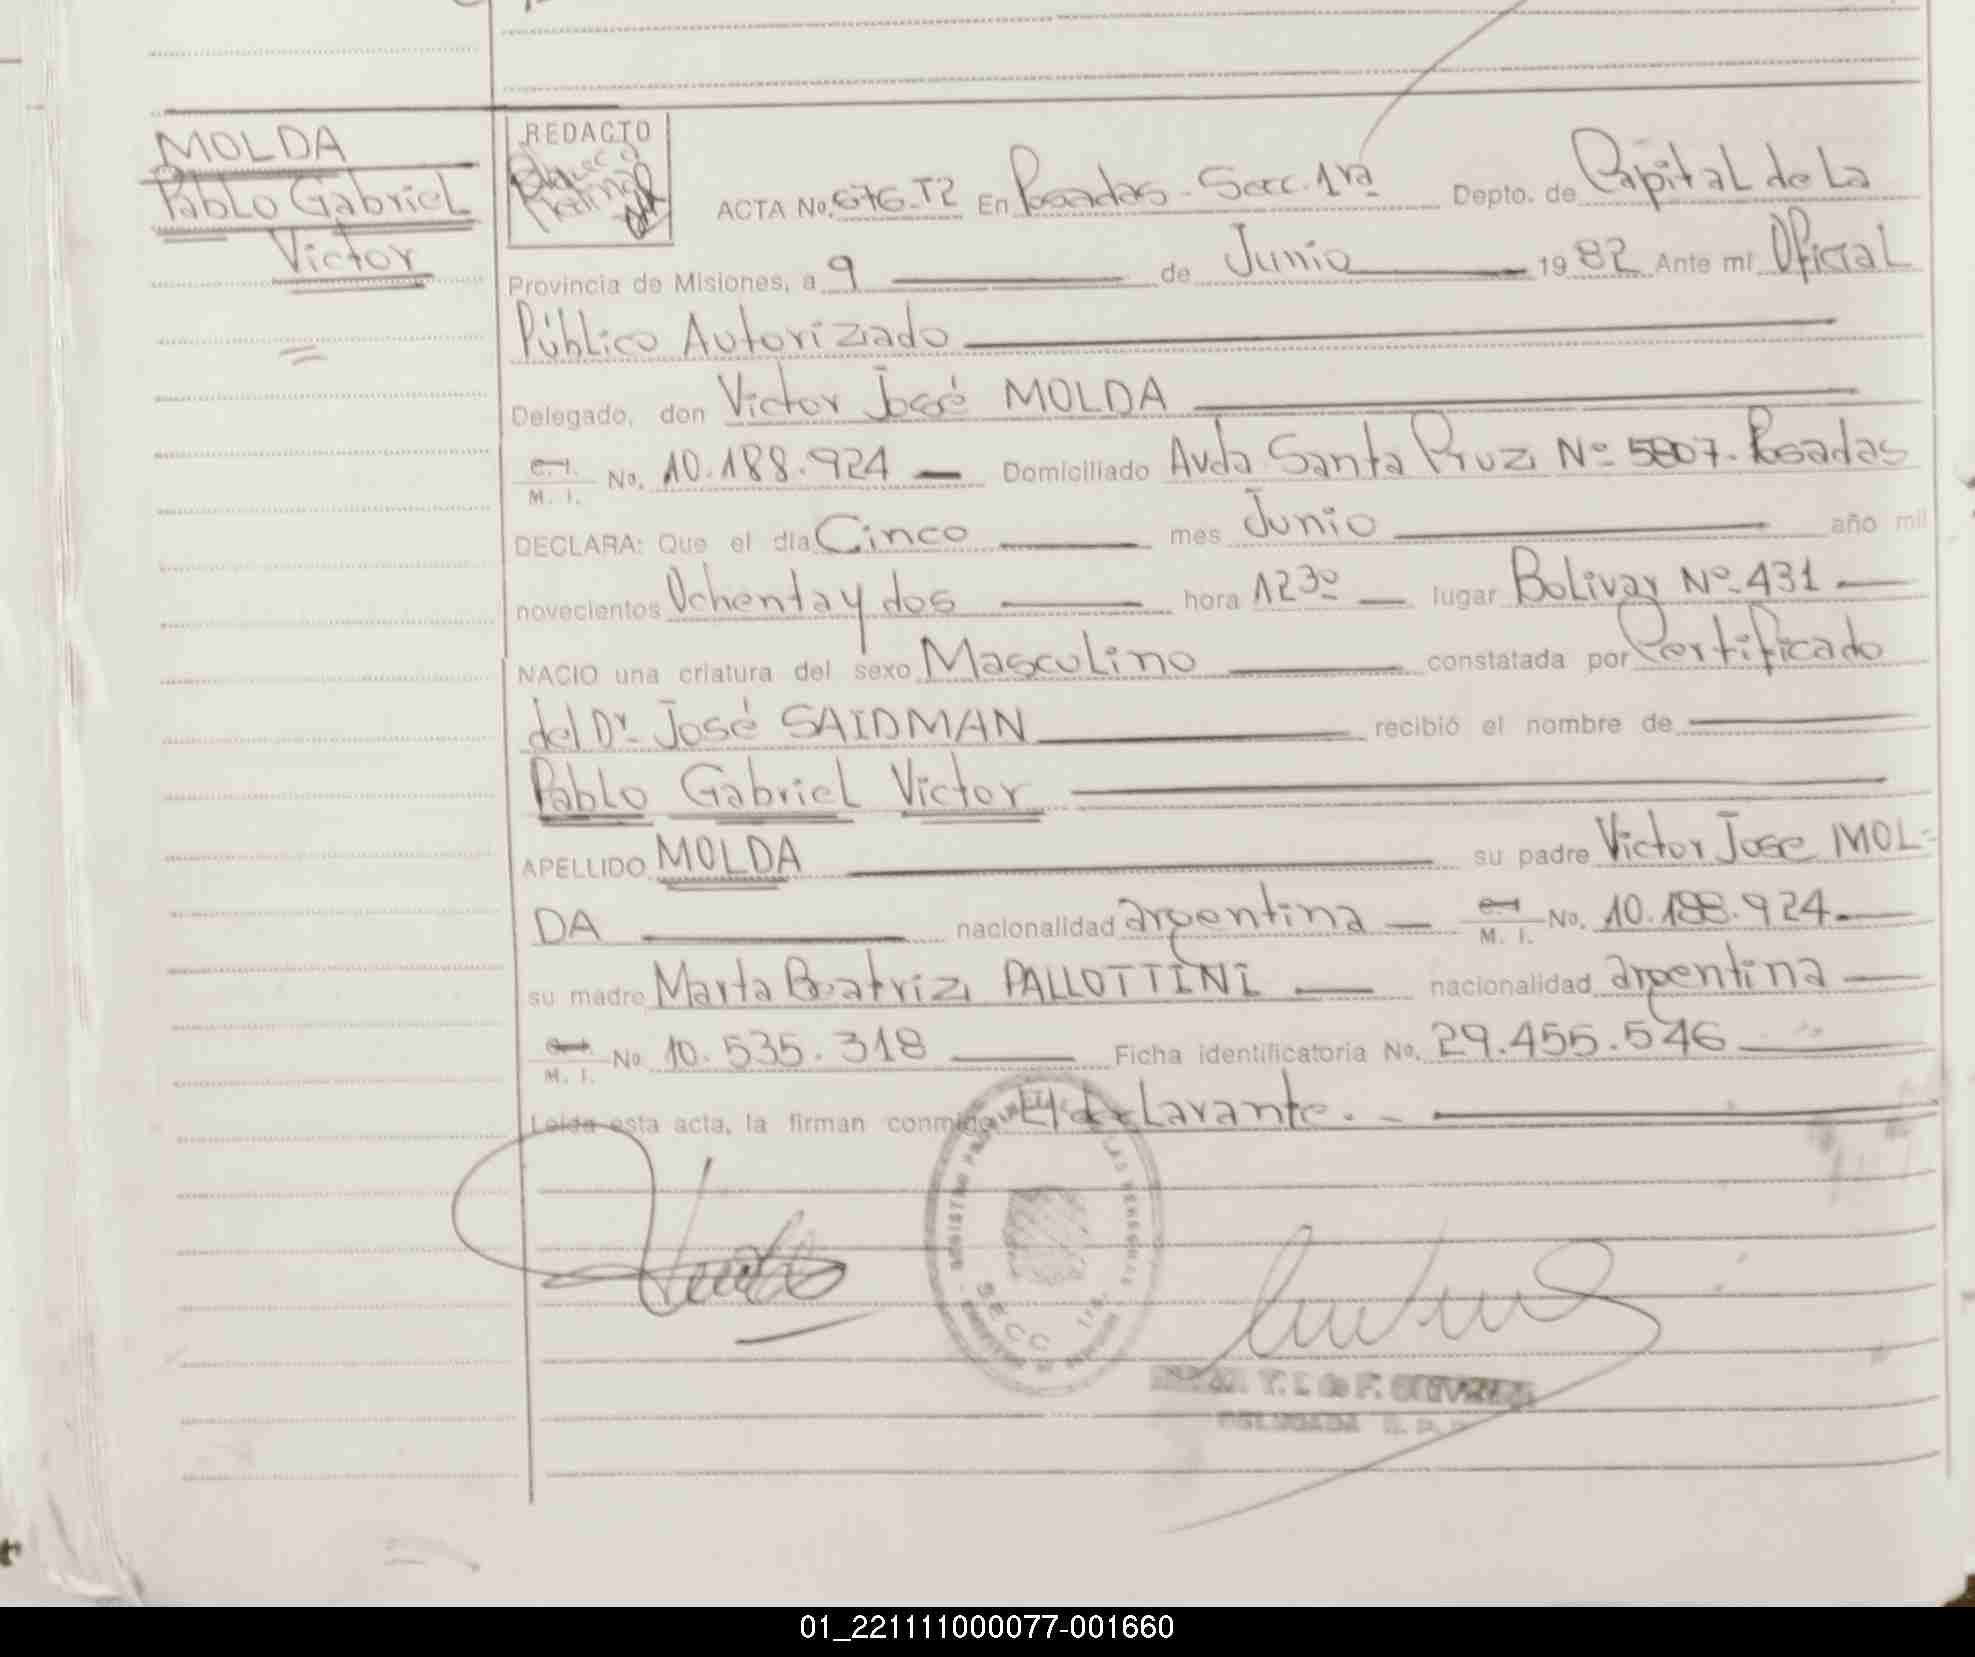 MOLDA
Pablo Gabriel
Victor
REDACTO
ACTA No. 676-T2 En Posadas - Secc. 1ra Depto. de Capital de La
Provincia de Misiones, a 9 de Junio 1982 Ante mí Oficial
Público Autorizado
Delegado, don Victor José MOLDA
C.I. M. I. No. 10.188.924 Domiciliado Avda Santa Cruz Nº 5807 - Posadas
DECLARA: Que el día Cinco mes Junio año mil
novecientos Ochenta y dos hora 1230 lugar Bolivar Nº 431
NACIO una criatura del sexo Masculino constatada por Certificado
del Dr. José SAIDMAN recibió el nombre de
Pablo Gabriel Victor
APELLIDO MOLDA su padre Victor Jose MOL=
DA nacionalidad argentina C.I. M. I. No. 10.188.924
su madre Marta Beatriz PALLOTTINI nacionalidad argentina
C.I. M. I. No 10.535.318 Ficha identificatoria No. 29.455.546
Leída esta acta, la firman conmigo El declarante. -
SECC 1ra.
DELEGADA
01_221111000077-001660